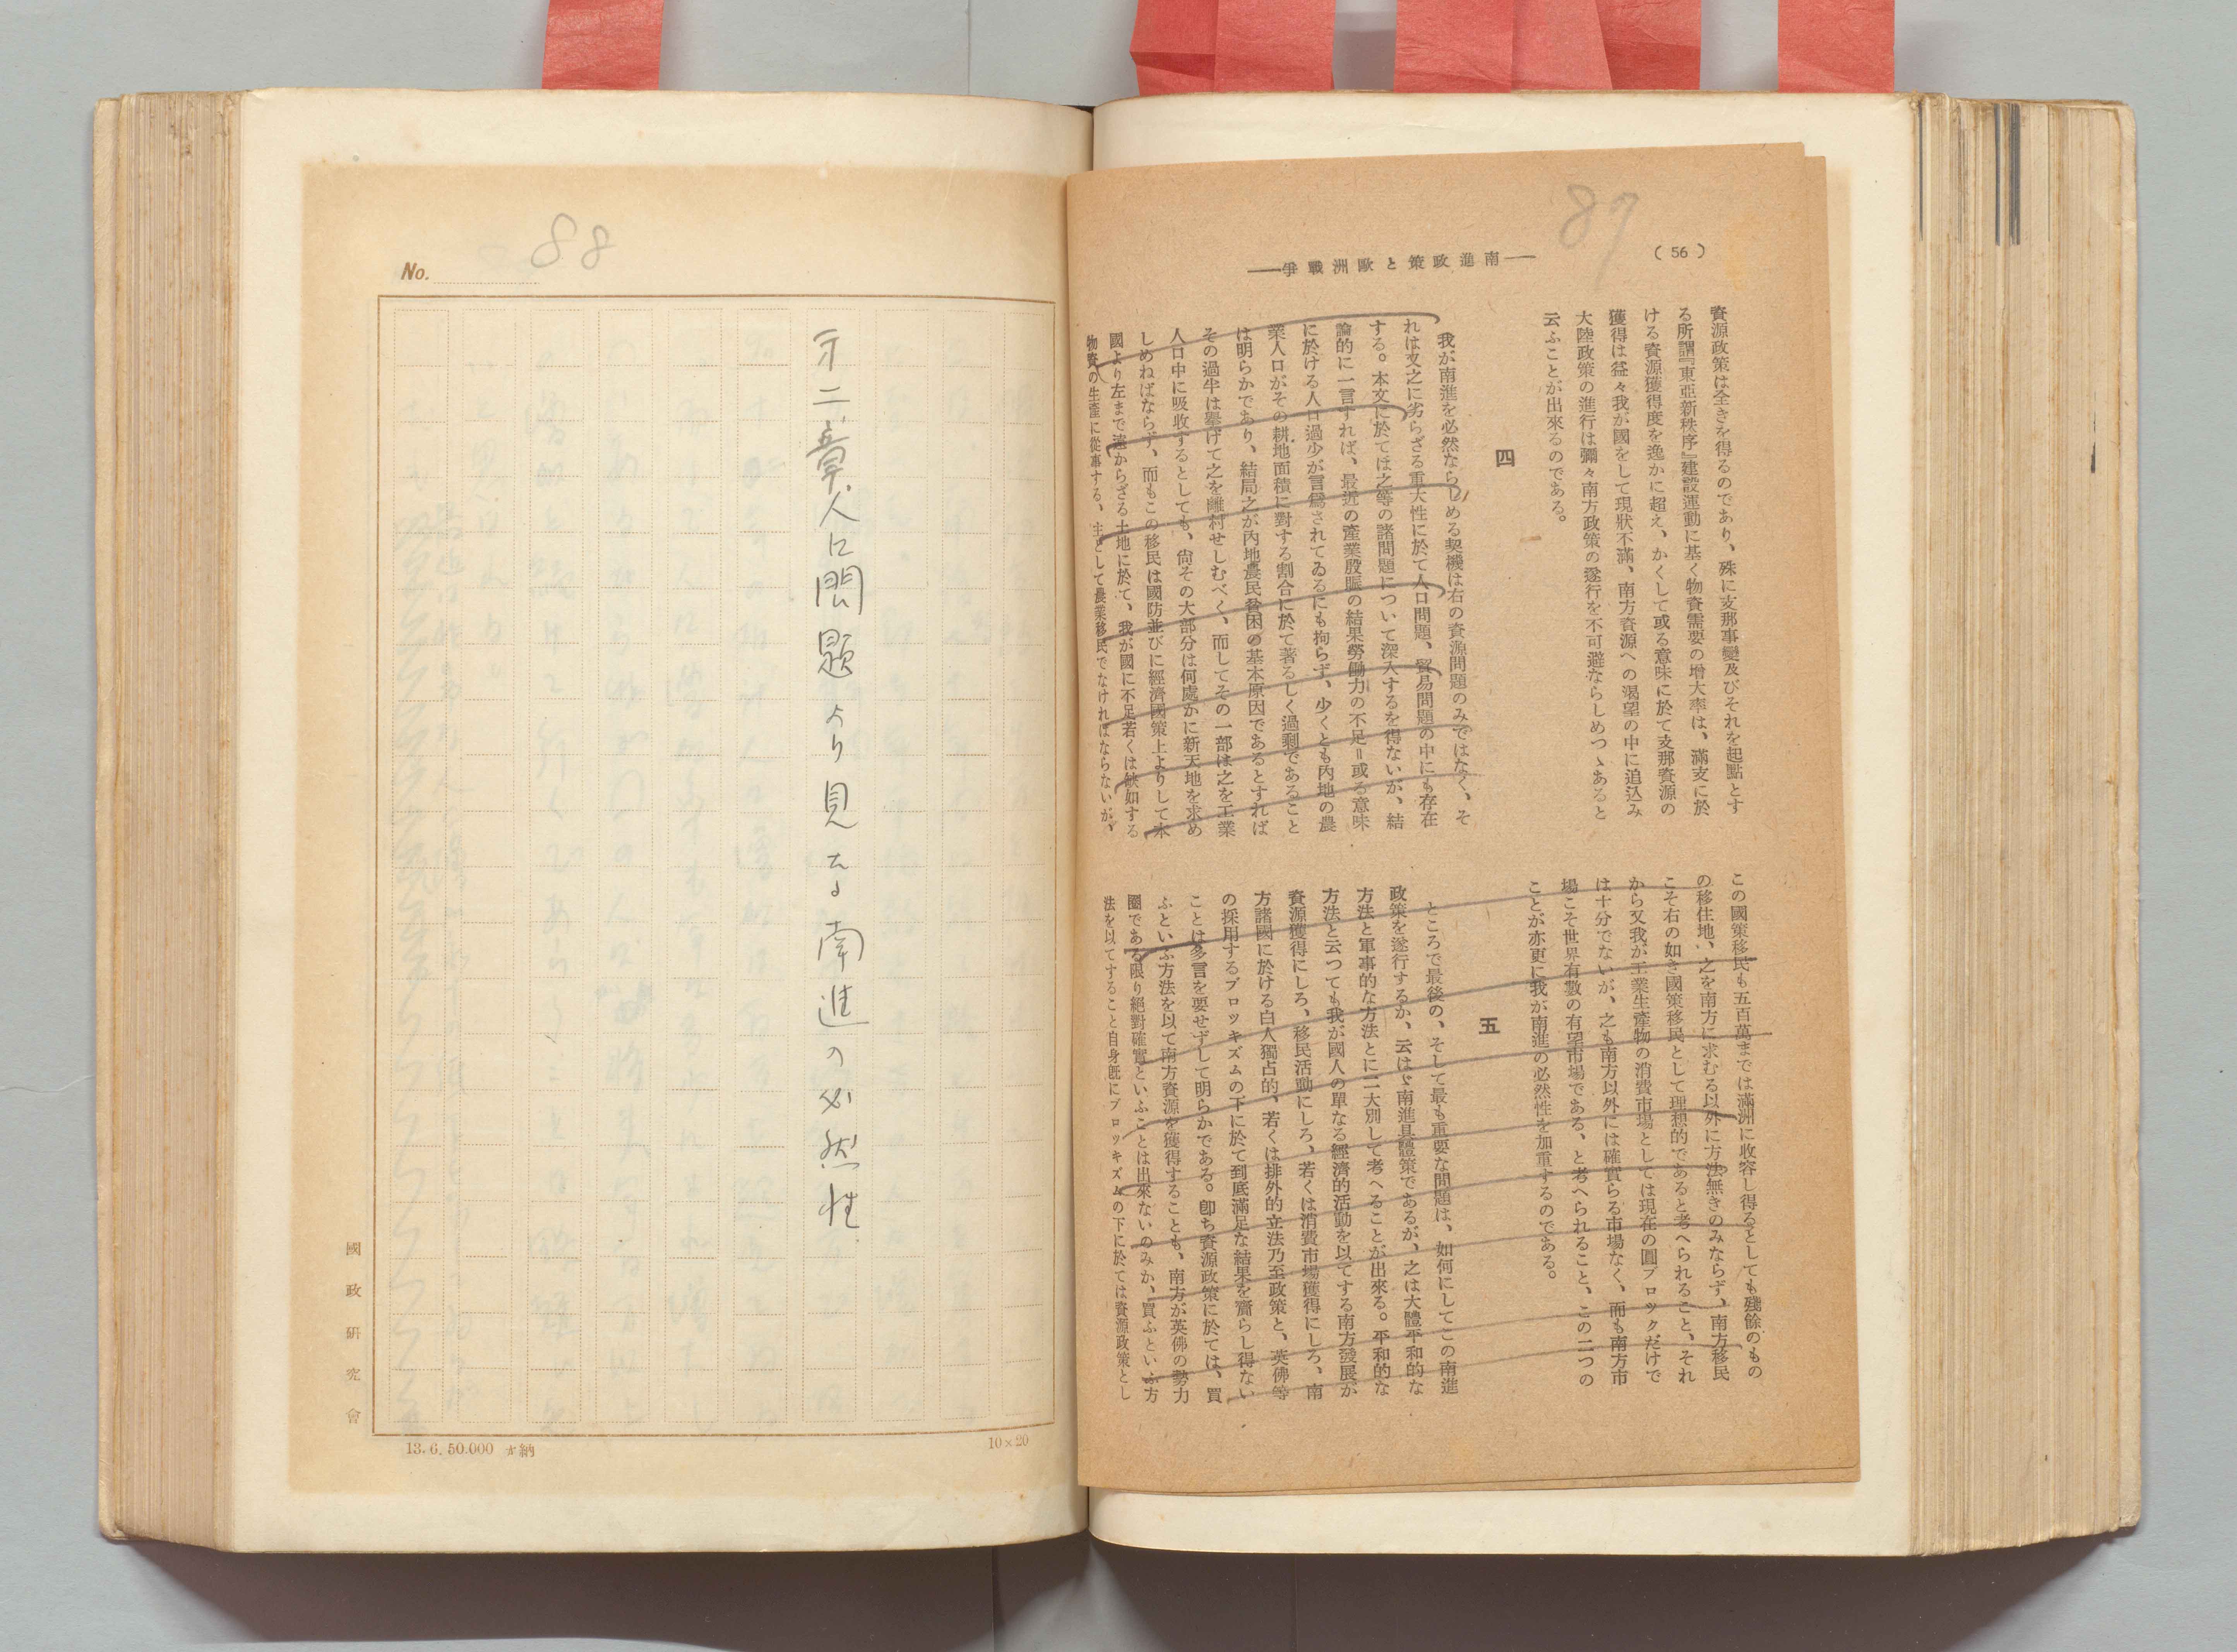 87
(56)
――南進政策と歐洲戰爭――
資源政策は全きを得るのであり、殊に支那事變及びそれを起點とす
る所謂『東亞新秩序』建設運動に基く物資需要の增大率は、滿支に於
ける資源獲得度を逸かに超え、かくして或る意味に於て支那資源の
獲得は益々我が國をして現狀不滿、南方資源への渴望の中に追込み
大陸政策の進行は彌々南方政策の遂行を不可避ならしめつゝあると
云ふことが出來るのである。
四
我が南進を必然ならしめる契機は右の資源問題のみではなく、そ
れは又之に劣らざる重大性に於て人口問題、貿易問題の中にも存在
する。本文に於ては之等の諸問題について深入するを得ないが、結
論的に一言すれば、最近の產業殷賑の結果勞働力の不足＝或る意味
に於ける人口過少が言爲されてゐるにも拘らず、少くとも內地の農
業人口がその耕地面積に對する割合に於て著るしく過剩であること
は明らかであり、結局之が內地農民貧困の基本原因であるとすれば
その過半は擧げて之を離村せしむべく、而してその一部は之を工業
人口中に吸收するとしても、尙その大部分は何處かに新天地を求め
しめねばならず、而もこの移民は國防並びに經濟國策上よりして本
國より左まで遠からざる土地に於て、我が國に不足若くは缺如する
物資の生產に從事する、主として農業移民でなければならないが、
この國策移民も五百萬までは滿洲に收容し得るとしても殘餘のもの
の移住地、之を南方に求むる以外に方法無きのみならず、南方移民
こそ右の如き國策移民として理想的であると考へられること、それ
から又我が工業生產物の消費市場としては現在の圓ブロックだけで
は十分でないが、之も南方以外には確實らる市場なく、而も南方市
場こそ世界有數の有望市場である、と考へられること、この二つの
ことが亦更に我が南進の必然性を加重するのである。
五
ところで最後の、そして最も重要な問題は、如何にしてこの南進
政策を遂行するか、云はゞ南進具體策であるが、之は大體平和的な
方法と軍事的な方法とに二大別して考へることが出來る。平和的な
方法と云つても我が國人の單なる經濟的活動を以てする南方發展か
資源獲得にしろ、移民活動にしろ、若くは消費市場獲得にしろ、南
方諸國に於ける白人獨占的、若くは排外的立法乃至政策と、英佛等
の採用するブロッキズムの下に於て到底滿足な結果を齎らし得ない
ことは多言を要せずして明らかである。卽ち資源政策に於ては、買
ふといふ方法を以て南方資源を獲得することも、南方が英佛の勢力
圈である限り絕對確實といふことは出來ないのみか、買ふといふ方
法を以てすること自身旣にブロッキズムの下に於ては資源政策とし
88
No.
第二章人口問題より見たる南進の必然性
國政硏究會
13.6.50.000 納
10×20